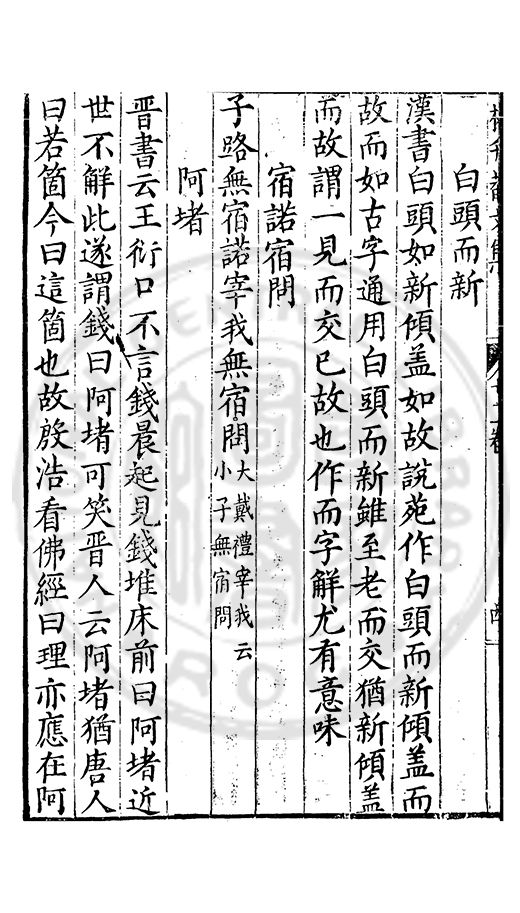 白頭而新
漢書白頭如新傾盖如故說苑作白頭而新傾盖而
故而如古字通用白頭而新雖至老而交猶新傾盖
而故謂一見而交已故也作而字解尤有意味
宿諾宿問
子路無宿諾宰我無宿問大戴禮宰我云
小子無宿問
阿堵
晋書云王衍口不言錢晨起見錢堆床前曰阿堵近
世不解此遂謂錢曰阿堵可笑晋人云阿堵猶唐人
曰若箇今曰這箇也故殷浩看佛經曰理亦應在阿